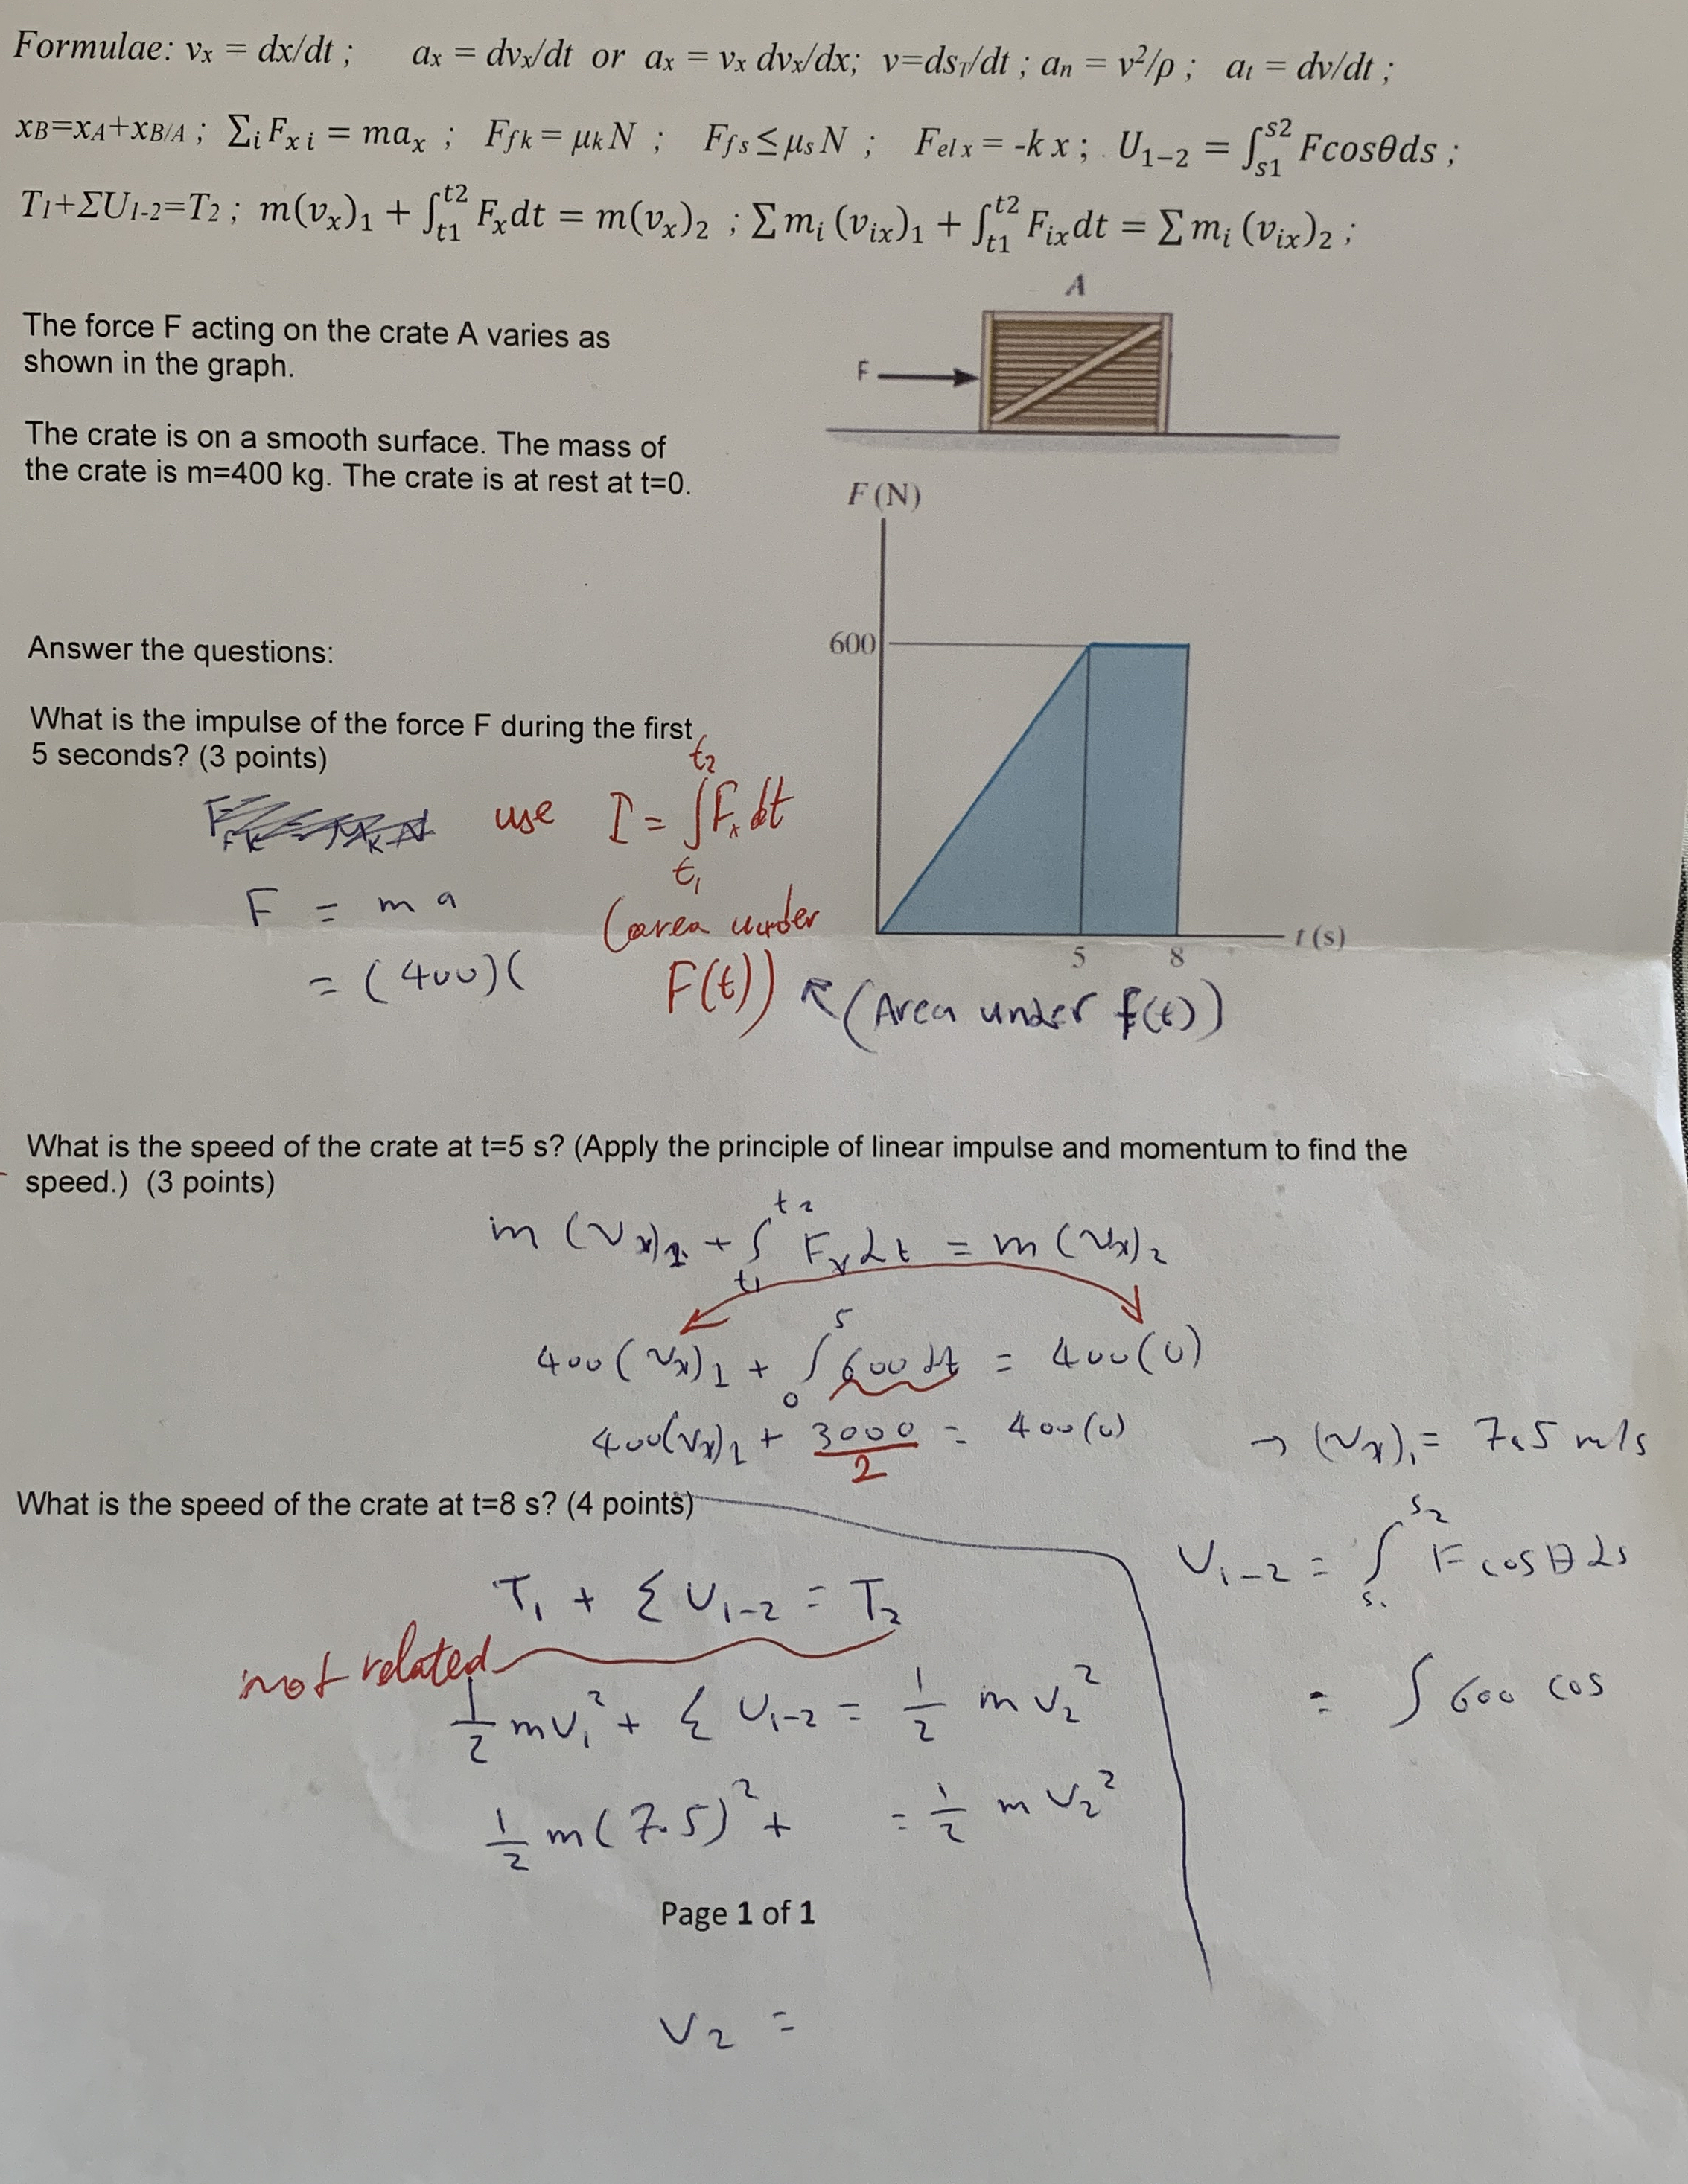 Formulae: vx = dx/dt ; ax = dvx/dt or ax = vx dvx/dx; v=dsT/dt ; an = v²/ρ ; at = dv/dt ;
xB=xA+xB/A ; ∑iFx i = max ; Ff k = μkN ; Ff s ≤ μsN ; Fel x = -k x ; U1−2 = ∫s1s2 Fcosθds ;
T1+ΣU1-2=T2 ; m(vx)1 + ∫t1t2 Fxdt = m(vx)2 ; ∑ mi (vix)1 + ∫t1t2 Fixdt = ∑ mi (vix)2 ;
A
The force F acting on the crate A varies as
shown in the graph.
F
The crate is on a smooth surface. The mass of
the crate is m=400 kg. The crate is at rest at t=0.
F (N)
600
5
8
t (s)
Answer the questions:
What is the impulse of the force F during the first
5 seconds? (3 points)
use I = ∫t1t2 Fx dt
F = m a
(area under
= (400)(
F(t))
(Area under f(t))
What is the speed of the crate at t=5 s? (Apply the principle of linear impulse and momentum to find the
speed.) (3 points)
m (Vx)1 + ∫t1t2 Fx dt = m (Vx)2
400 (Vx)1 + ∫05 600 dt = 400(0)
400(Vx)1 + 3000/2 = 400(0) → (Vx)1 = 7.5 m/s
What is the speed of the crate at t=8 s? (4 points)
T1 + Σ U1-2 = T2
not related
1/2 mV1² + Σ U1-2 = 1/2 m V2²
1/2 m(7.5)² + = 1/2 m V2²
U1-2 = ∫s1s2 F cosθ ds
= ∫ 600 cos
Page 1 of 1
V2 =